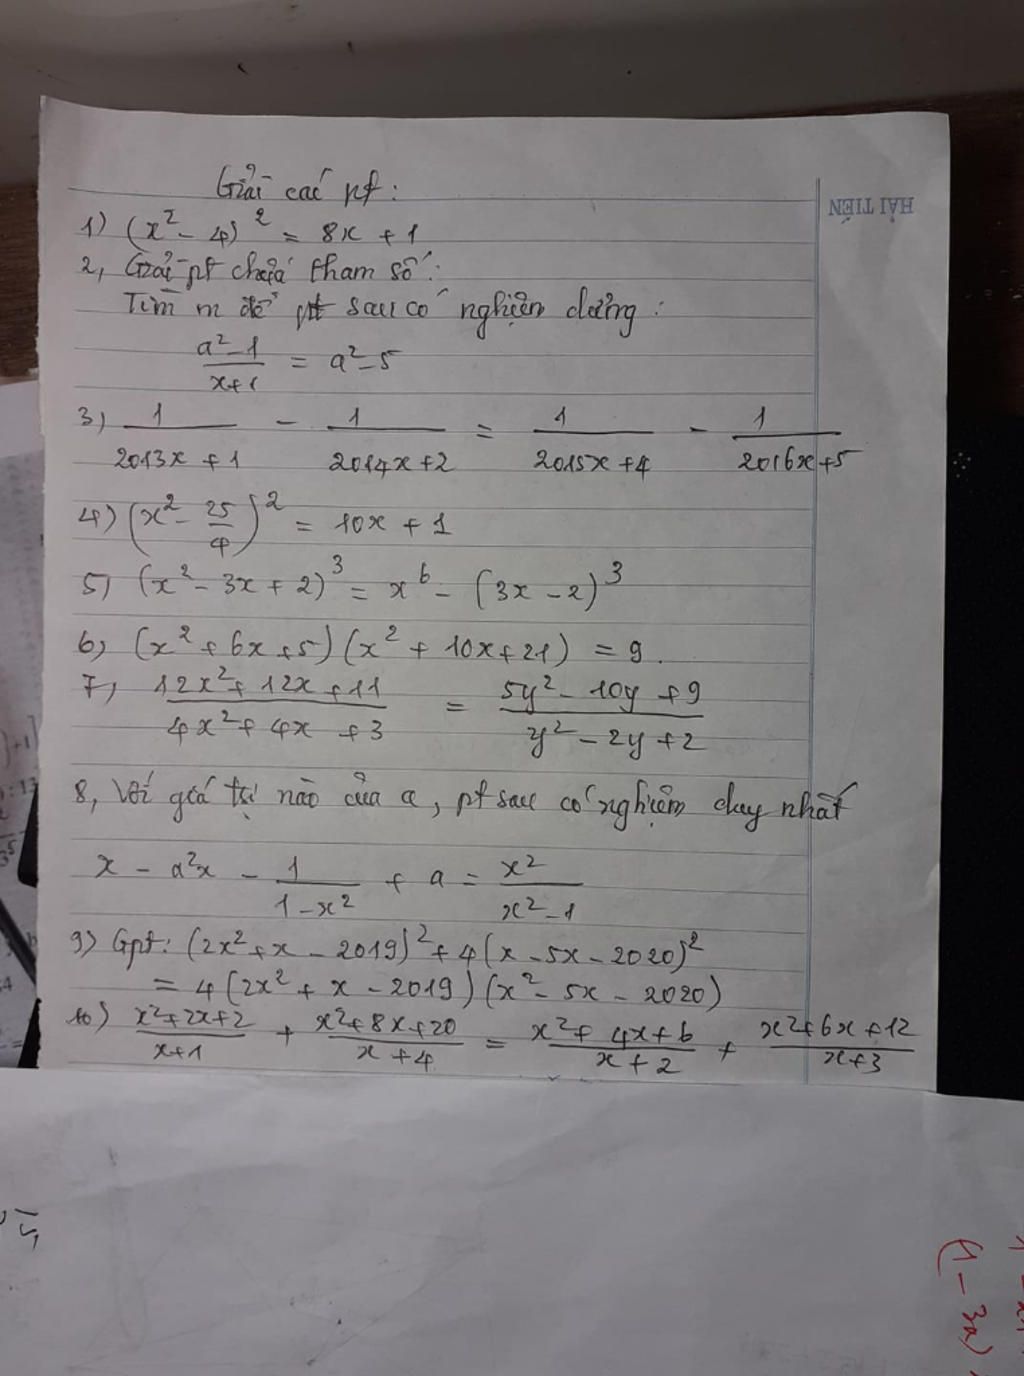 Giải các pt:
HẢI TIẾN
1) (x² - 4)² = 8x + 1
2, Giải pt chứa tham số:
Tìm m để pt sau có nghiệm dương:
a²-1 / x+1 = a²-5
3) 1 / 2013x + 1 - 1 / 2014x+2 = 1 / 2015x+4 - 1 / 2016x+5
4) (x² - 25/4)² = 10x + 1
5) (x² - 3x + 2)³ = x⁶ - (3x - 2)³
6, (x² + 6x + 5)(x² + 10x + 21) = 9.
7, 12x² + 12x + 11 / 4x² + 4x + 3 = 5y² - 10y + 9 / y² - 2y + 2
8, Với giá trị nào của a, pt sau có nghiệm duy nhất
x - a²x - 1 / 1-x² + a = x² / x²-1
9) Gpt: (2x² + x - 2019)² + 4(x - 5x - 2020)²
= 4(2x² + x - 2019)(x² - 5x - 2020)
10) x²+2x+2 / x+1 + x²+8x+20 / x+4 = x²+4x+6 / x+2 + x²+6x+12 / x+3
(1 - 3x)